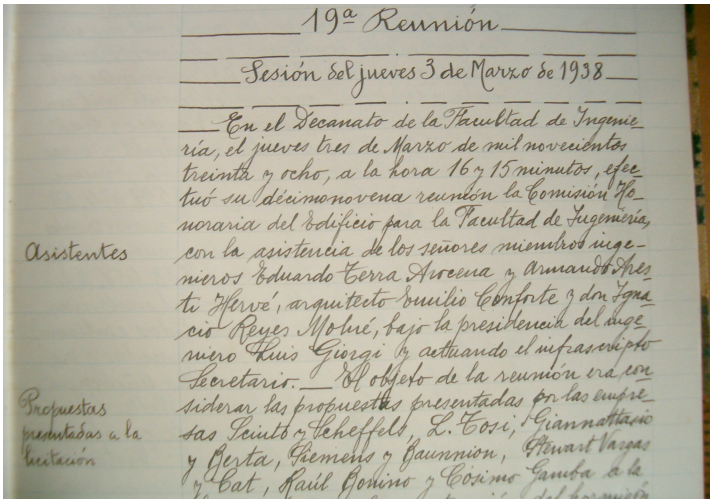 19ª Reunión
Sesión del jueves 3 de Marzo de 1938
En el Decanato de la Facultad de Ingenie-
ría, el jueves tres de Marzo de mil novecientos
treinta y ocho, a la hora 16 y 15 minutos, efec-
tuó su décimonovena reunión la Comisión Ho-
noraria del Edificio para la Facultad de Ingeniería,
Asistentes
con la asistencia de los señores miembros inge-
nieros Eduardo Terra Arocena y Armando Ares-
ti Hervé, arquitecto Emilio Conforte y don Igna-
cio Reyes Molné, bajo la presidencia del inge-
niero Luis Giorgi y actuando el infrascripto
Secretario. — El objeto de la reunión era con-
Propuestas
presentadas a la
licitación
siderar las propuestas presentadas por las empre-
sas Sciuto y Scheffels, L. Tosi, Giannattasio
y Berta, Siemens y Baunnion, Stewart Vargas
y Cat, Raúl Bonino y Cósimo Gamba a la